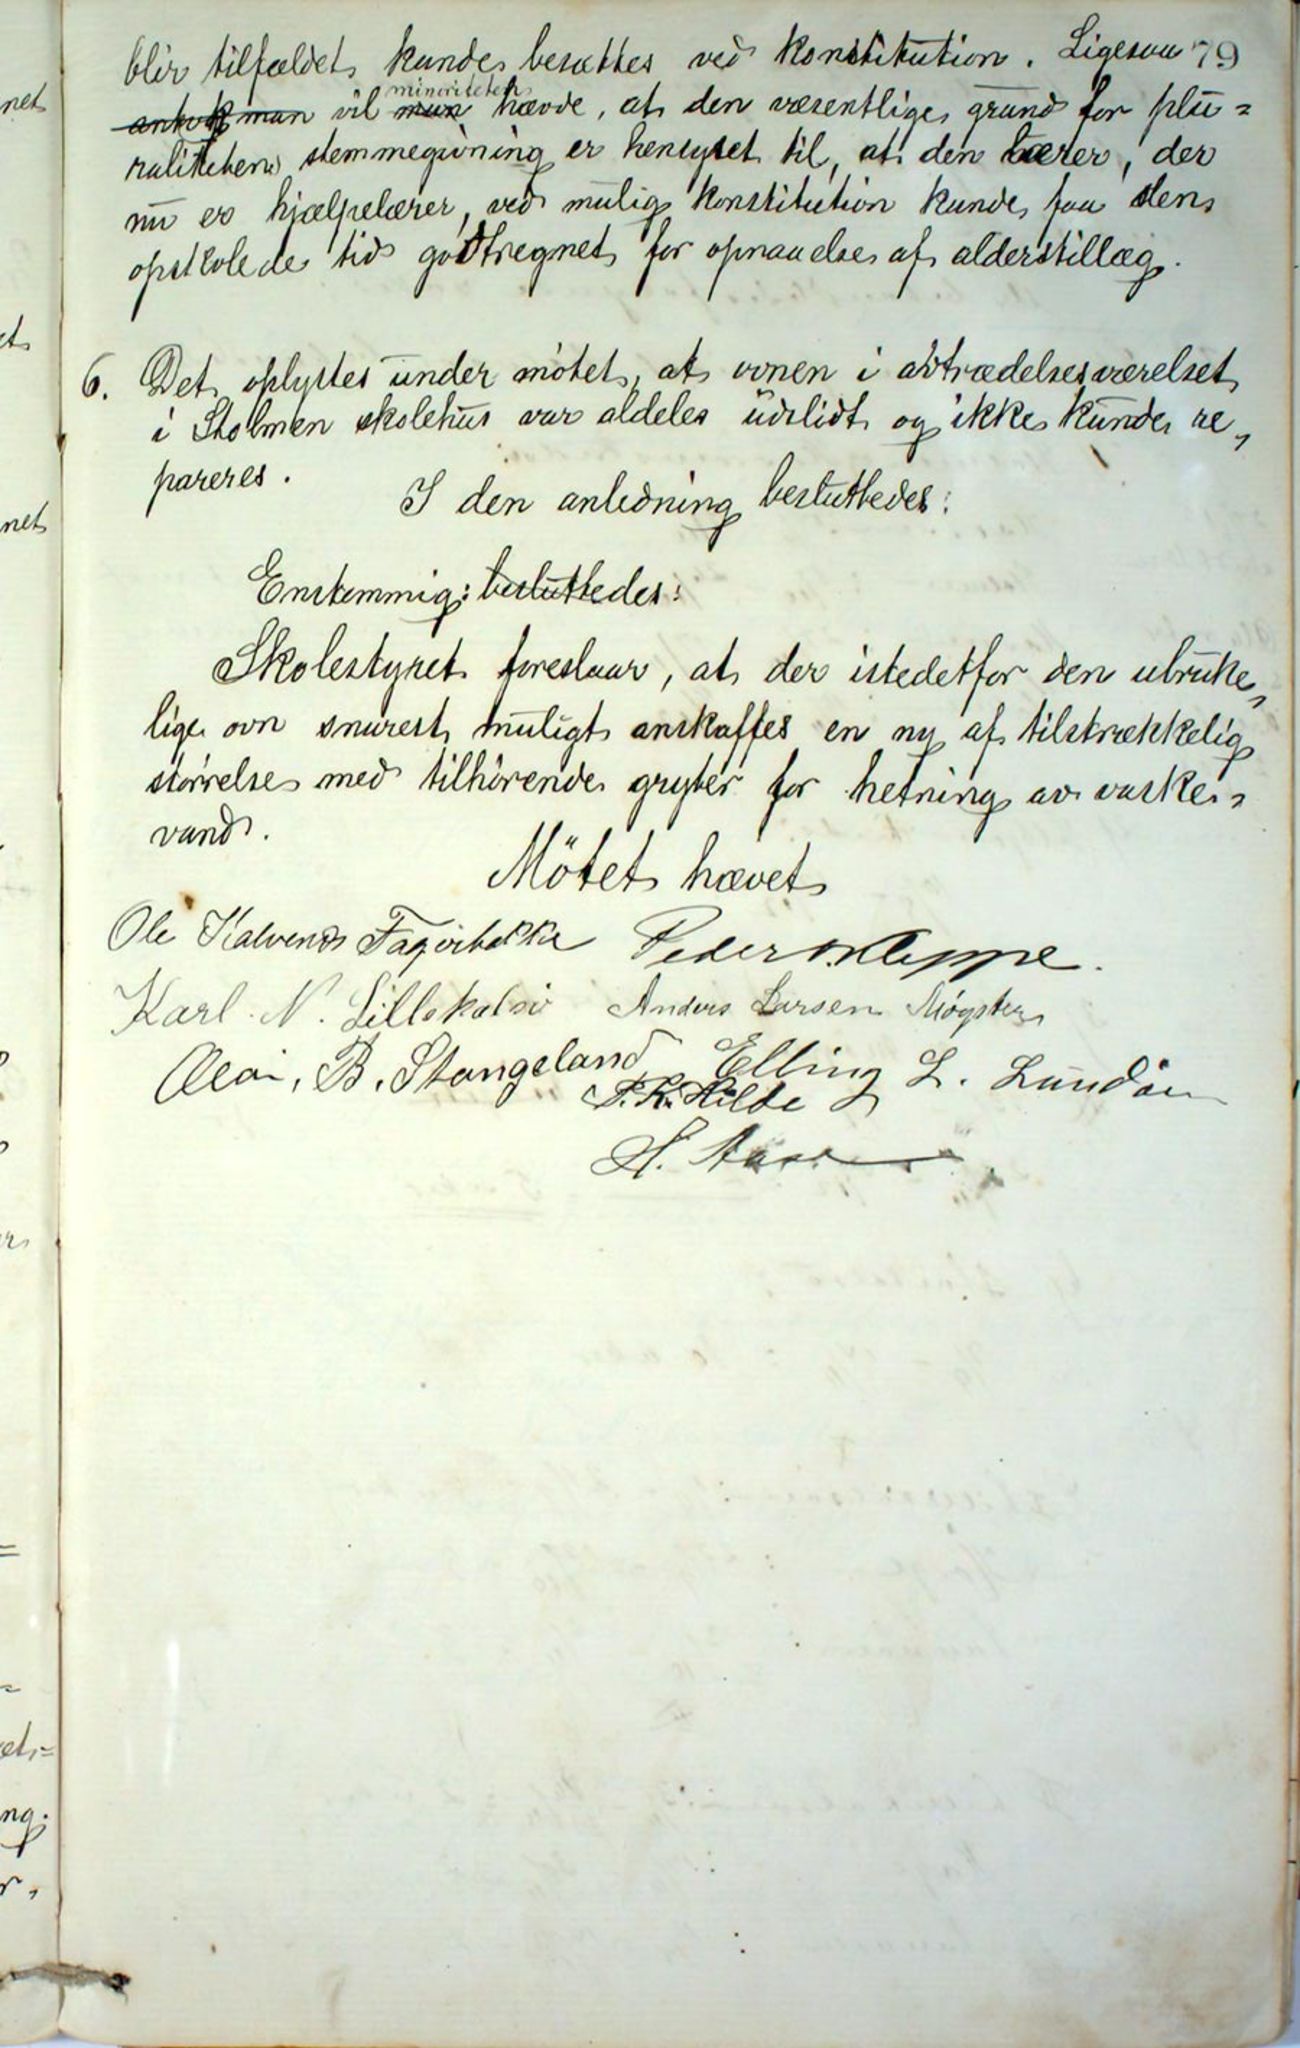 79
blir tilfældet kunde besættes ved konstitution. Ligesaa
man vil minoriteten man hævde, at den væsentlige grund for plu=
ralitetens stemmegivning er hensynet til, at den lærer, der
nu er hjælpelærer, ved mulig konstitution kunde faa den
opskolede tid godtregnet for opnaaelse af alderstillæg.
6. Det oplystes under møtet, at ovnen i avtrædelsesværelset
i Stolmen skolehus var aldeles udslidt og ikke kunde re„
pareres.
I den anledning besluttedes:
Enstemmig: besluttedes:
Skolestyret foreslaar, at der istedetfor den ubruke„
lige ovn snarest muligt anskaffes en ny af tilstrækkelig
størrelse med tilhörende gryter for hetning av vaske„
vand.
Mötet hævet
Ole Kalvenes Fagerbakke Peder O. Kleppe.
Karl N. Lillekalsö Anders Larsen Møgster
B. Stangeland Elling L. Lundøen
Hilde
H. Aase
net
et
net
ng.